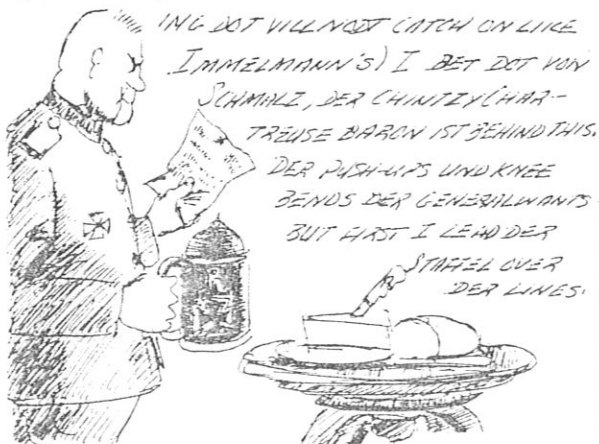 ING DOT VILL NODT CATCH ON LIKE
IMMELMANN'S) I BET DOT VON
SCHMALZ, DER CHINTZY CHAR-
TREUSE BARON IST BEHIND THIS.
DER PUSH-UPS UND KNEE
BENDS DER GENERAL WANTS
BUT FIRST I LEAD DER
STAFFEL OVER
DER LINES.